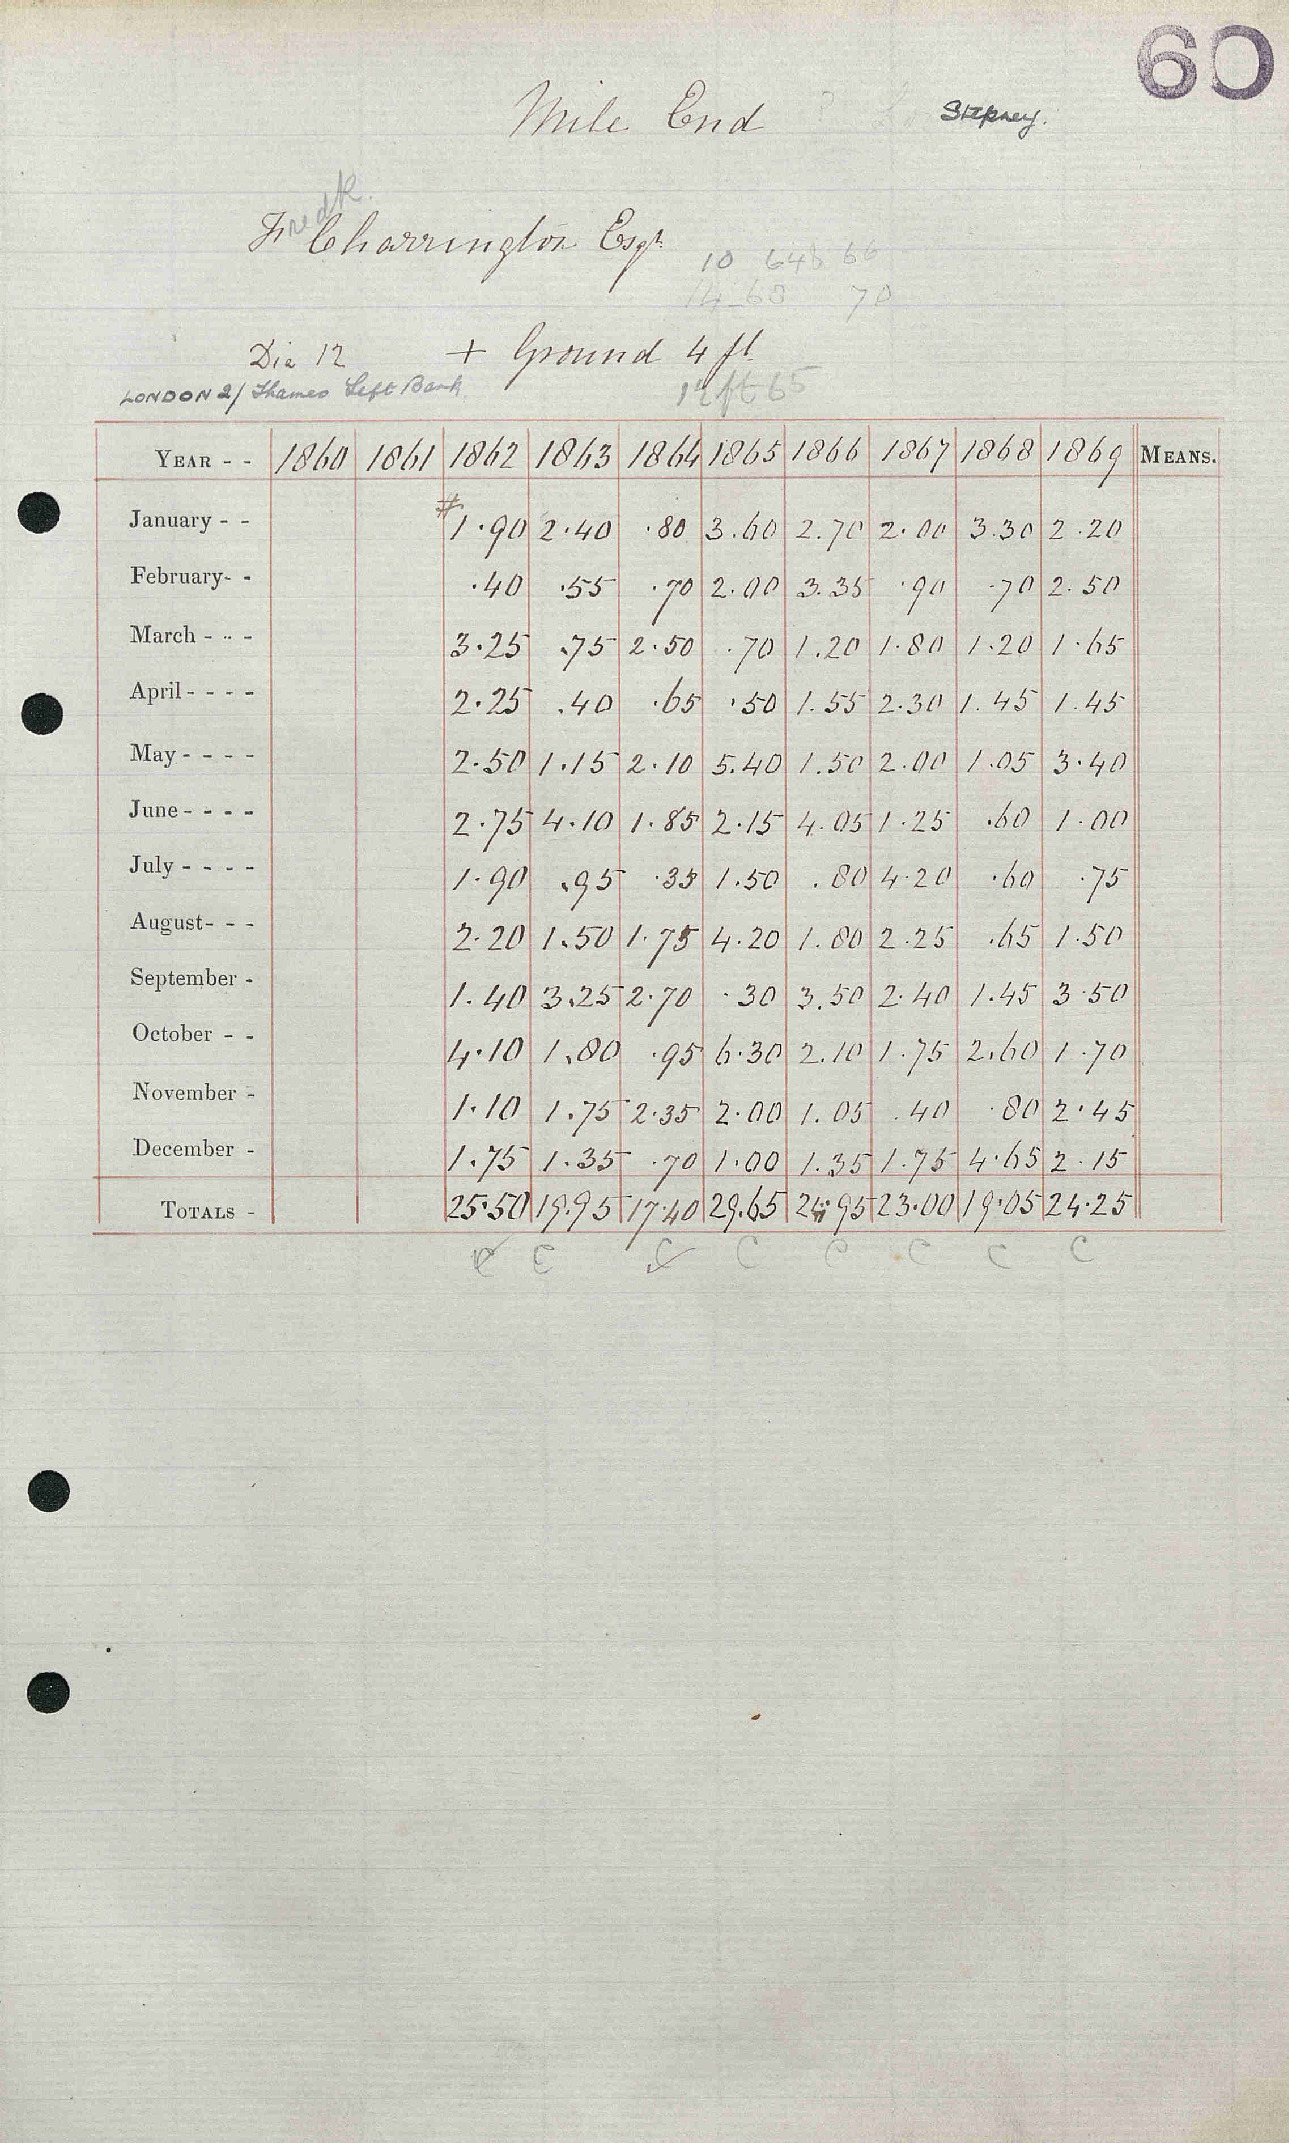 60
Mile End Stepney.
Fredk.
F Charrington Esqr.
10 64 66
14 68 70
Dia 12 + Ground 4 ft
LONDON 2/ Thames Left Bank 12 ft 65
YEAR - - 1860 1861 1862 1863 1864 1865 1866 1867 1868 1869 MEANS.
January - - # 1.90 2.40 .80 3.60 2.70 2.00 3.30 2.20
February - - .40 .55 .70 2.00 3.35 .90 .70 2.50
March - - - 3.25 .75 2.50 .70 1.20 1.80 1.20 1.65
April - - - - 2.25 .40 .65 .50 1.55 2.30 1.45 1.45
May - - - - 2.50 1.15 2.10 5.40 1.50 2.00 1.05 3.40
June - - - - 2.75 4.10 1.85 2.15 4.05 1.25 .60 1.00
July - - - - 1.90 .95 .35 1.50 .80 4.20 .60 .75
August - - - 2.20 1.50 1.75 4.20 1.80 2.25 .65 1.50
September - 1.40 3.25 2.70 .30 3.50 2.40 1.45 3.50
October - - 4.10 1.80 .95 6.30 2.10 1.75 2.60 1.70
November - 1.10 1.75 2.35 2.00 1.05 .40 .80 2.45
December - 1.75 1.35 .70 1.00 1.35 1.75 4.65 2.15
TOTALS - 25.50 19.95 17.40 29.65 24.95 23.00 19.05 24.25
C C C C C C C C